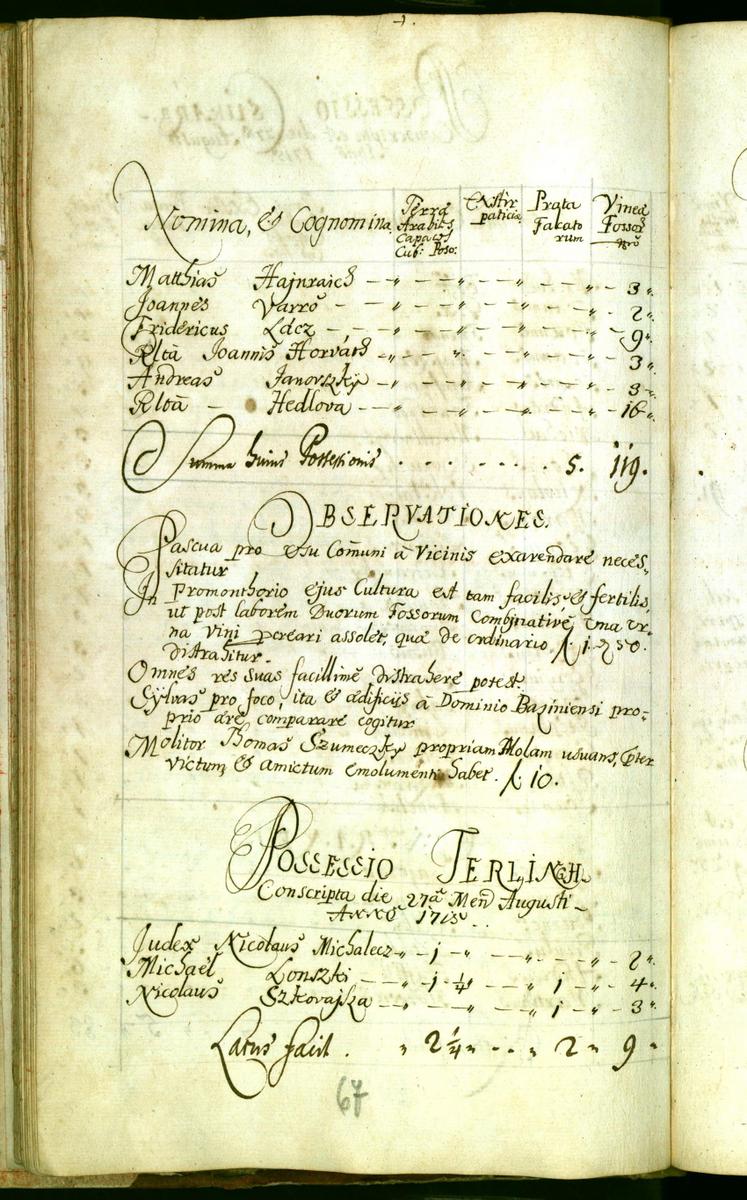 Nomina, & Cognomina. Terrae Arabil: Capac: Cub: Poso: Exstirpaticiae Prata Falcatorum Vineae Fossor
Matthias Hajnraich — „ — — „ — — „ — „ — 3 „
Joannes Varro — „ — — „ — — „ — „ — 2 „
Fridericus Lácz — — „ — — „ — — „ — „ — 9 „
Rltà Joannis Horváth — „ — — „ — — „ — „ — 3 „
Andreas Janovszky — „ — — „ — — „ — „ — 3 „
Rltà — Hedlova — „ — — „ — — „ — „ — 16 „
Summa huius Possessionis . . . . . . 5. 119.
OBSERVATIONES.
Pascua pro usu Comuni à Vicinis exarendare neces=
sitatur
In Promonthorio ejus Cultura est tam facilis & fertilis,
ut post laborem Duorum Fossorum Combinativé Una Ur=
na Vini pcreari assolet, quae de ordinario f 1. d 50.
distrahitur.
Omnes res suas facillimé distrahere potest.
Sylvas pro foco, ita & aedificijs à Dominio Baziniensi pro=
prio aere comparare cogitur
Molitor Thomas Szumeczky propriam Molam usuans, pter
victum & amictum emolumenti habet. f. 10.
POSSESSIO TERLINGH.
Conscripta die 27ã Men Augusti
ANNO 1715.
Judex Nicolaus Michalecz „ — 1 — „ — — „ — „ — 2 „
Michaël Lonszki — „ — 1 ¼ — „ — 1 — „ — 4 „
Nicolaus Szkovajka — „ — — „ — 1 — „ — 3 „
Latus facit . „ 2 ¼ „ - - „ 2 „ 9 „
67